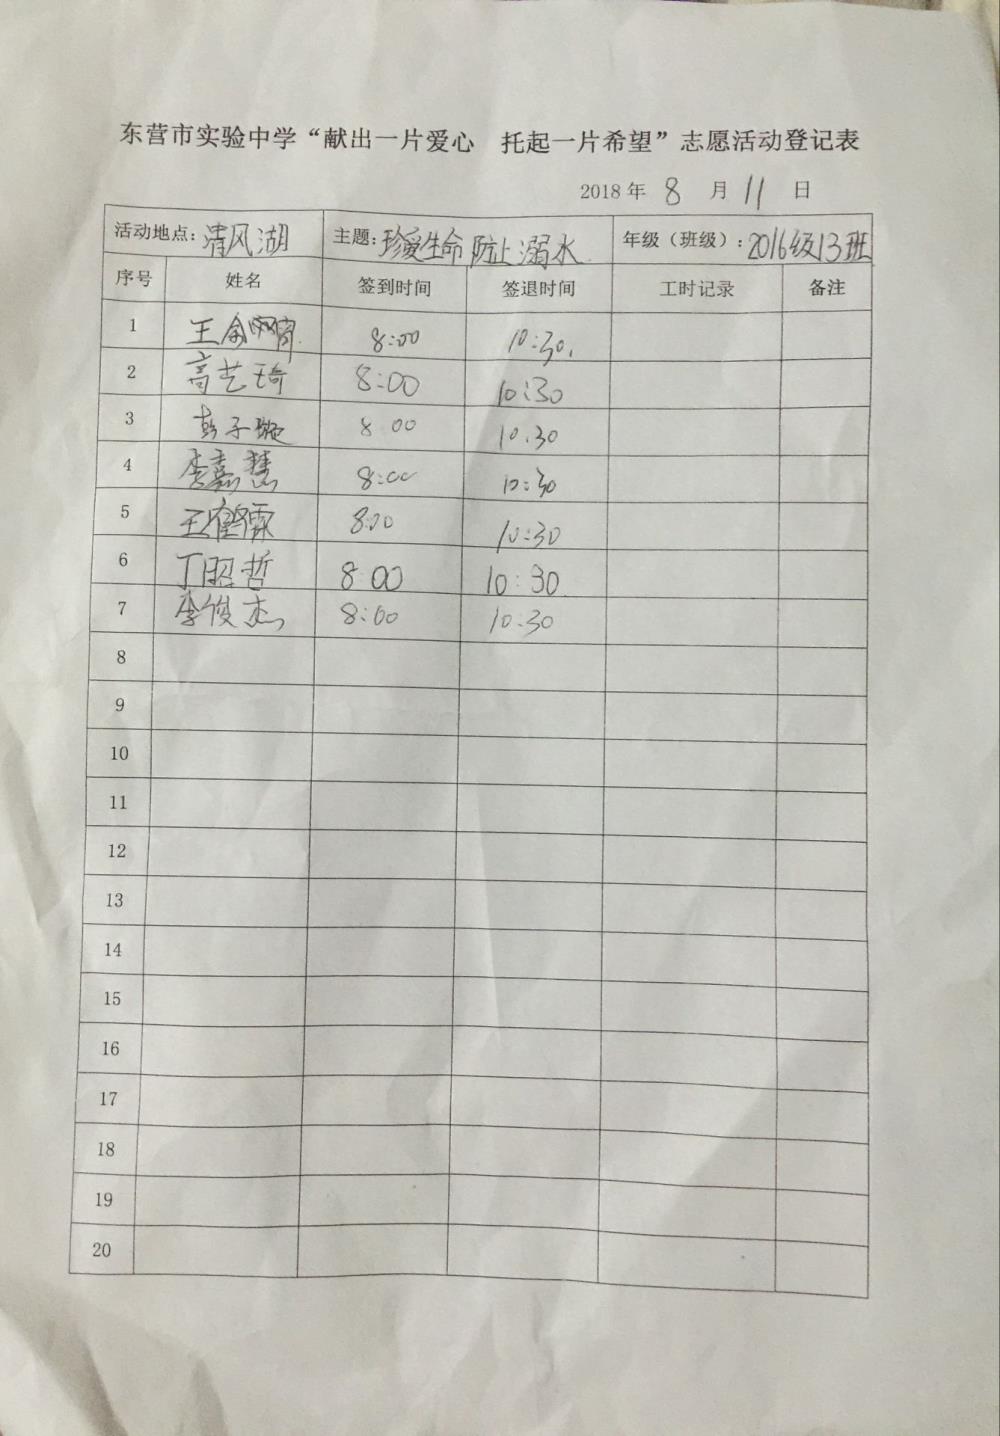 东营市实验中学“献出一片爱心 托起一片希望”志愿活动登记表
2018 年 8 月 11 日
活动地点：清风湖 主题：珍爱生命 防止溺水 年级（班级）：2016级13班
序号 姓名 签到时间 签退时间 工时记录 备注
1 王 8:00 10:30.
2 高艺琦 8:00 10:30
3 彭子璇 8 00 10.30
4 李嘉慧 8:00 10:30
5 王 霖 8:00 10:30
6 丁昭哲 8 00 10:30
7 李俊杰 8:00 10:30
8
9
10
11
12
13
14
15
16
17
18
19
20